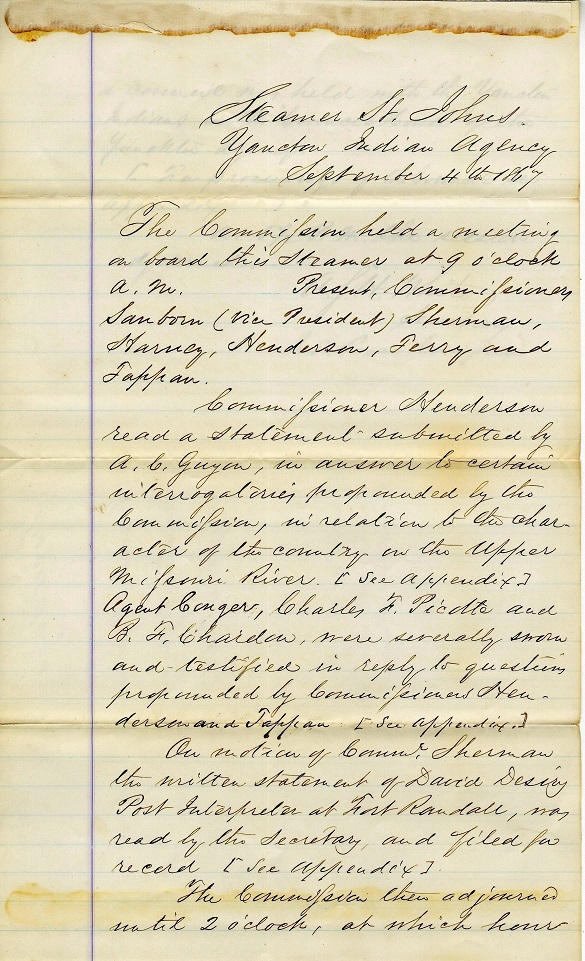 Steamer St. Johns.
Yancton Indian Agency
September 4th 1867
The Commission held a meeting
on board this Steamer at 9 o'clock
A. M. Present, Commissioners
Sanborn (Vice President) Sherman,
Harney, Henderson, Terry and
Tappan.
Commissioner Henderson
read a statement submitted by
A. C. Guyon, in answer to certain
interrogatories propounded by the
Commission, in relation to the char-
acter of the country on the Upper
Missouri River. [See Appendix]
Agent Conger, Charles F. Picotte and
B. F. Chardon, were severally sworn
and testified in reply to questions
propounded by Commissioners Hen-
derson and Tappan. [See Appendix.]
On motion of Commr. Sherman
the written statement of David Desiry
Post Interpreter at Fort Randall, was
read by the Secretary, and filed for
record [See Appendix].
The Commission then adjourned
until 2 o'clock, at which hour